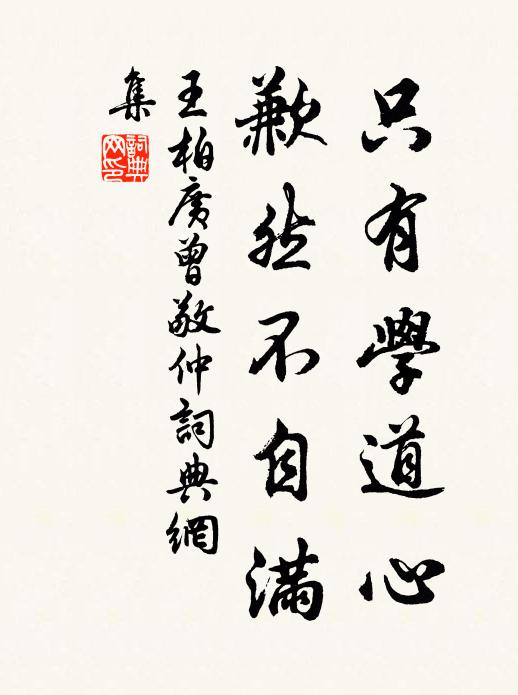 只有學道心
歉然不自滿
王柏廣曾敬仲詞典網
集
詞典
网印